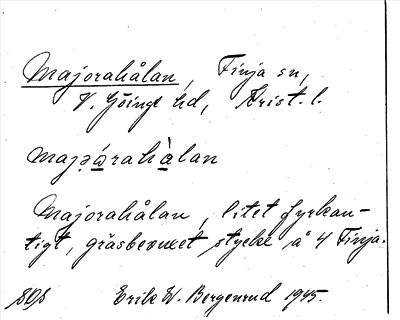 Majorahålan, Finja sn,
V. Göinge hd, Krist. l.
majo̤rahålan
Majorahålan, litet fyrkan-
tigt, gräsbevuxet stycke å 4 Finja.
Erik W. Bergenrud 1945.